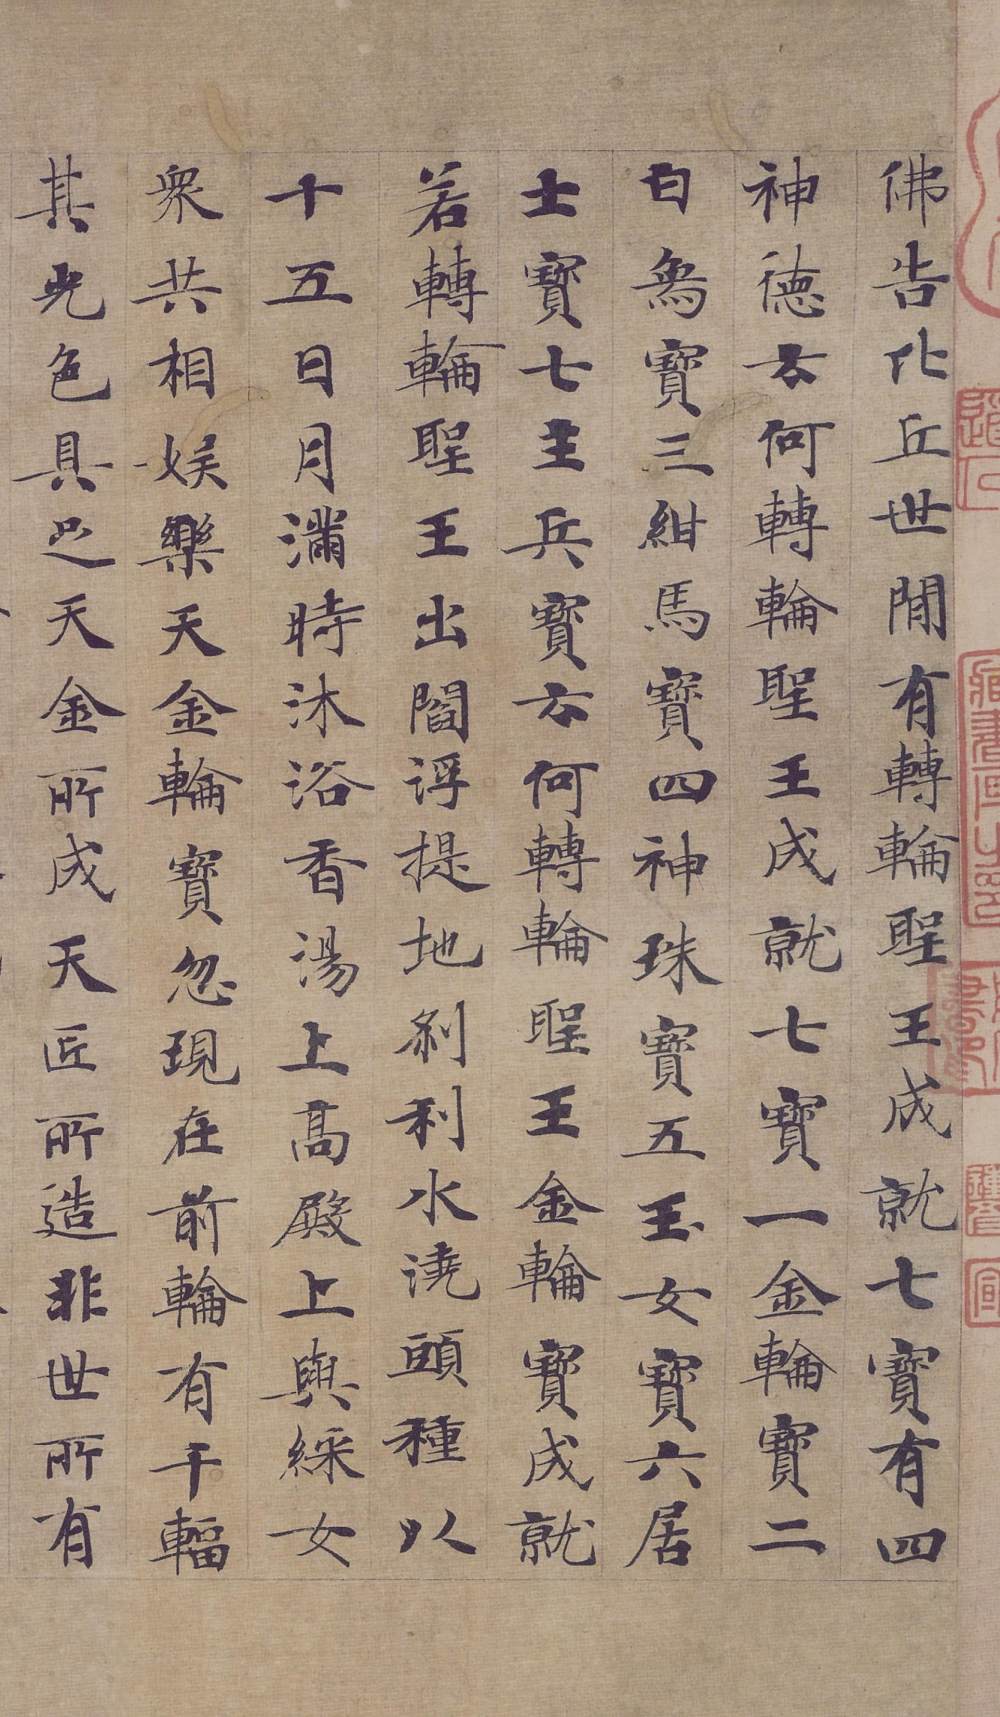 佛告比丘世間有轉輪聖王成就七寶有四
神德云何轉輪聖王成就七寶一金輪寶二
白象寶三紺馬寶四神珠寶五玉女寶六居
士寶七主兵寶云何轉輪聖王金輪寶成就
若轉輪聖王出閻浮提地剎利水澆頭種以
十五日月滿時沐浴香湯上高殿上與綵女
眾共相娛樂天金輪寶忽現在前輪有千輻
其光色具足天金所成天匠所造非世所有